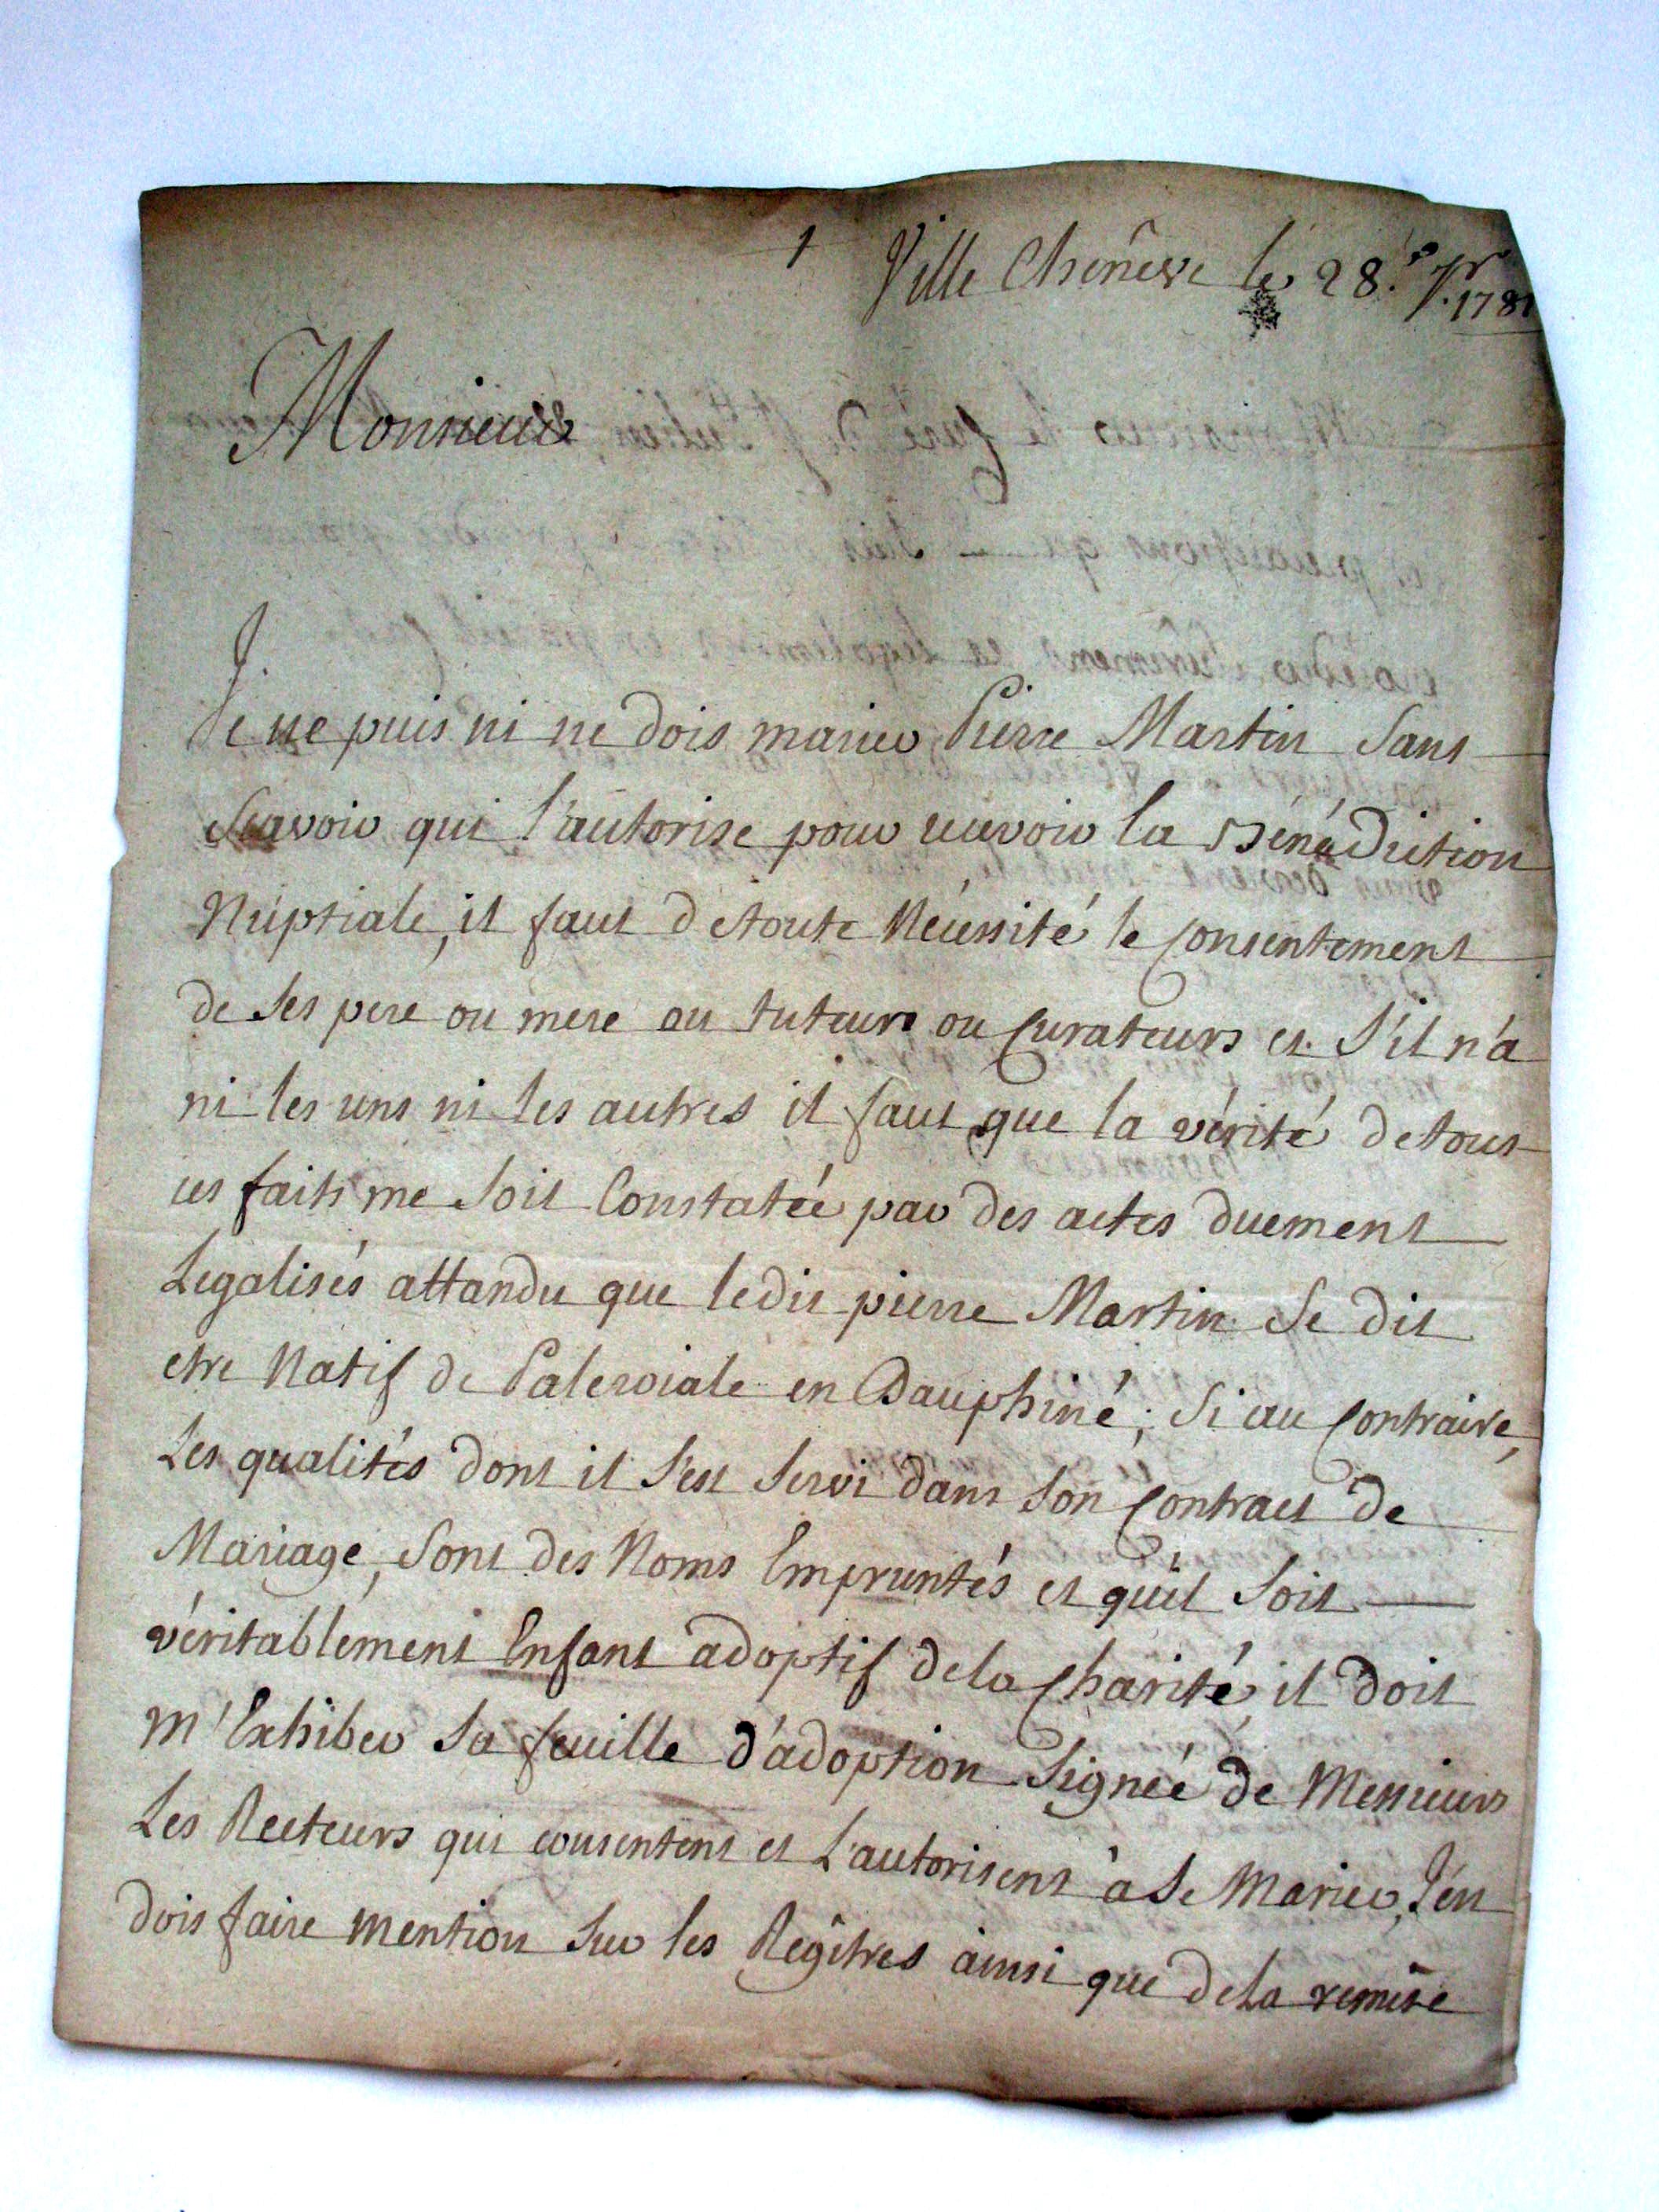 Ville Chenêve le 28.e 7.br 1781
Monsieur
Je ne puis ni ne dois marier Pierre Martin Sans
Scavoir qui l'autorise pour recevoir la Bénédiction
Nuptiale, il faut detoute Nécessité le Consentement
de Ses pere ou mere ou tuteurs ou Curateurs et S'il n'a
ni les uns ni les autres il faut que la vérité detous
ces faits me Soit Constatée par des actes duement
Legalisés attandu que ledit pierre Martin Se dit
etre Natif de en Dauphiné; Si au Contraire,
Les qualités dont il S'est Servi dans Son Contract de
Mariage, Sont des Noms Empruntés et qu'il Soit
véritablement Enfant adoptif dela Charité, il doit
m'Exhiber Sa feuille d'adoption Signée de Messieurs
Les Recteurs qui consentent et L'autorisent à Se Marier, J'en
dois faire mention Sur les Regîtres ainsi que dela remise